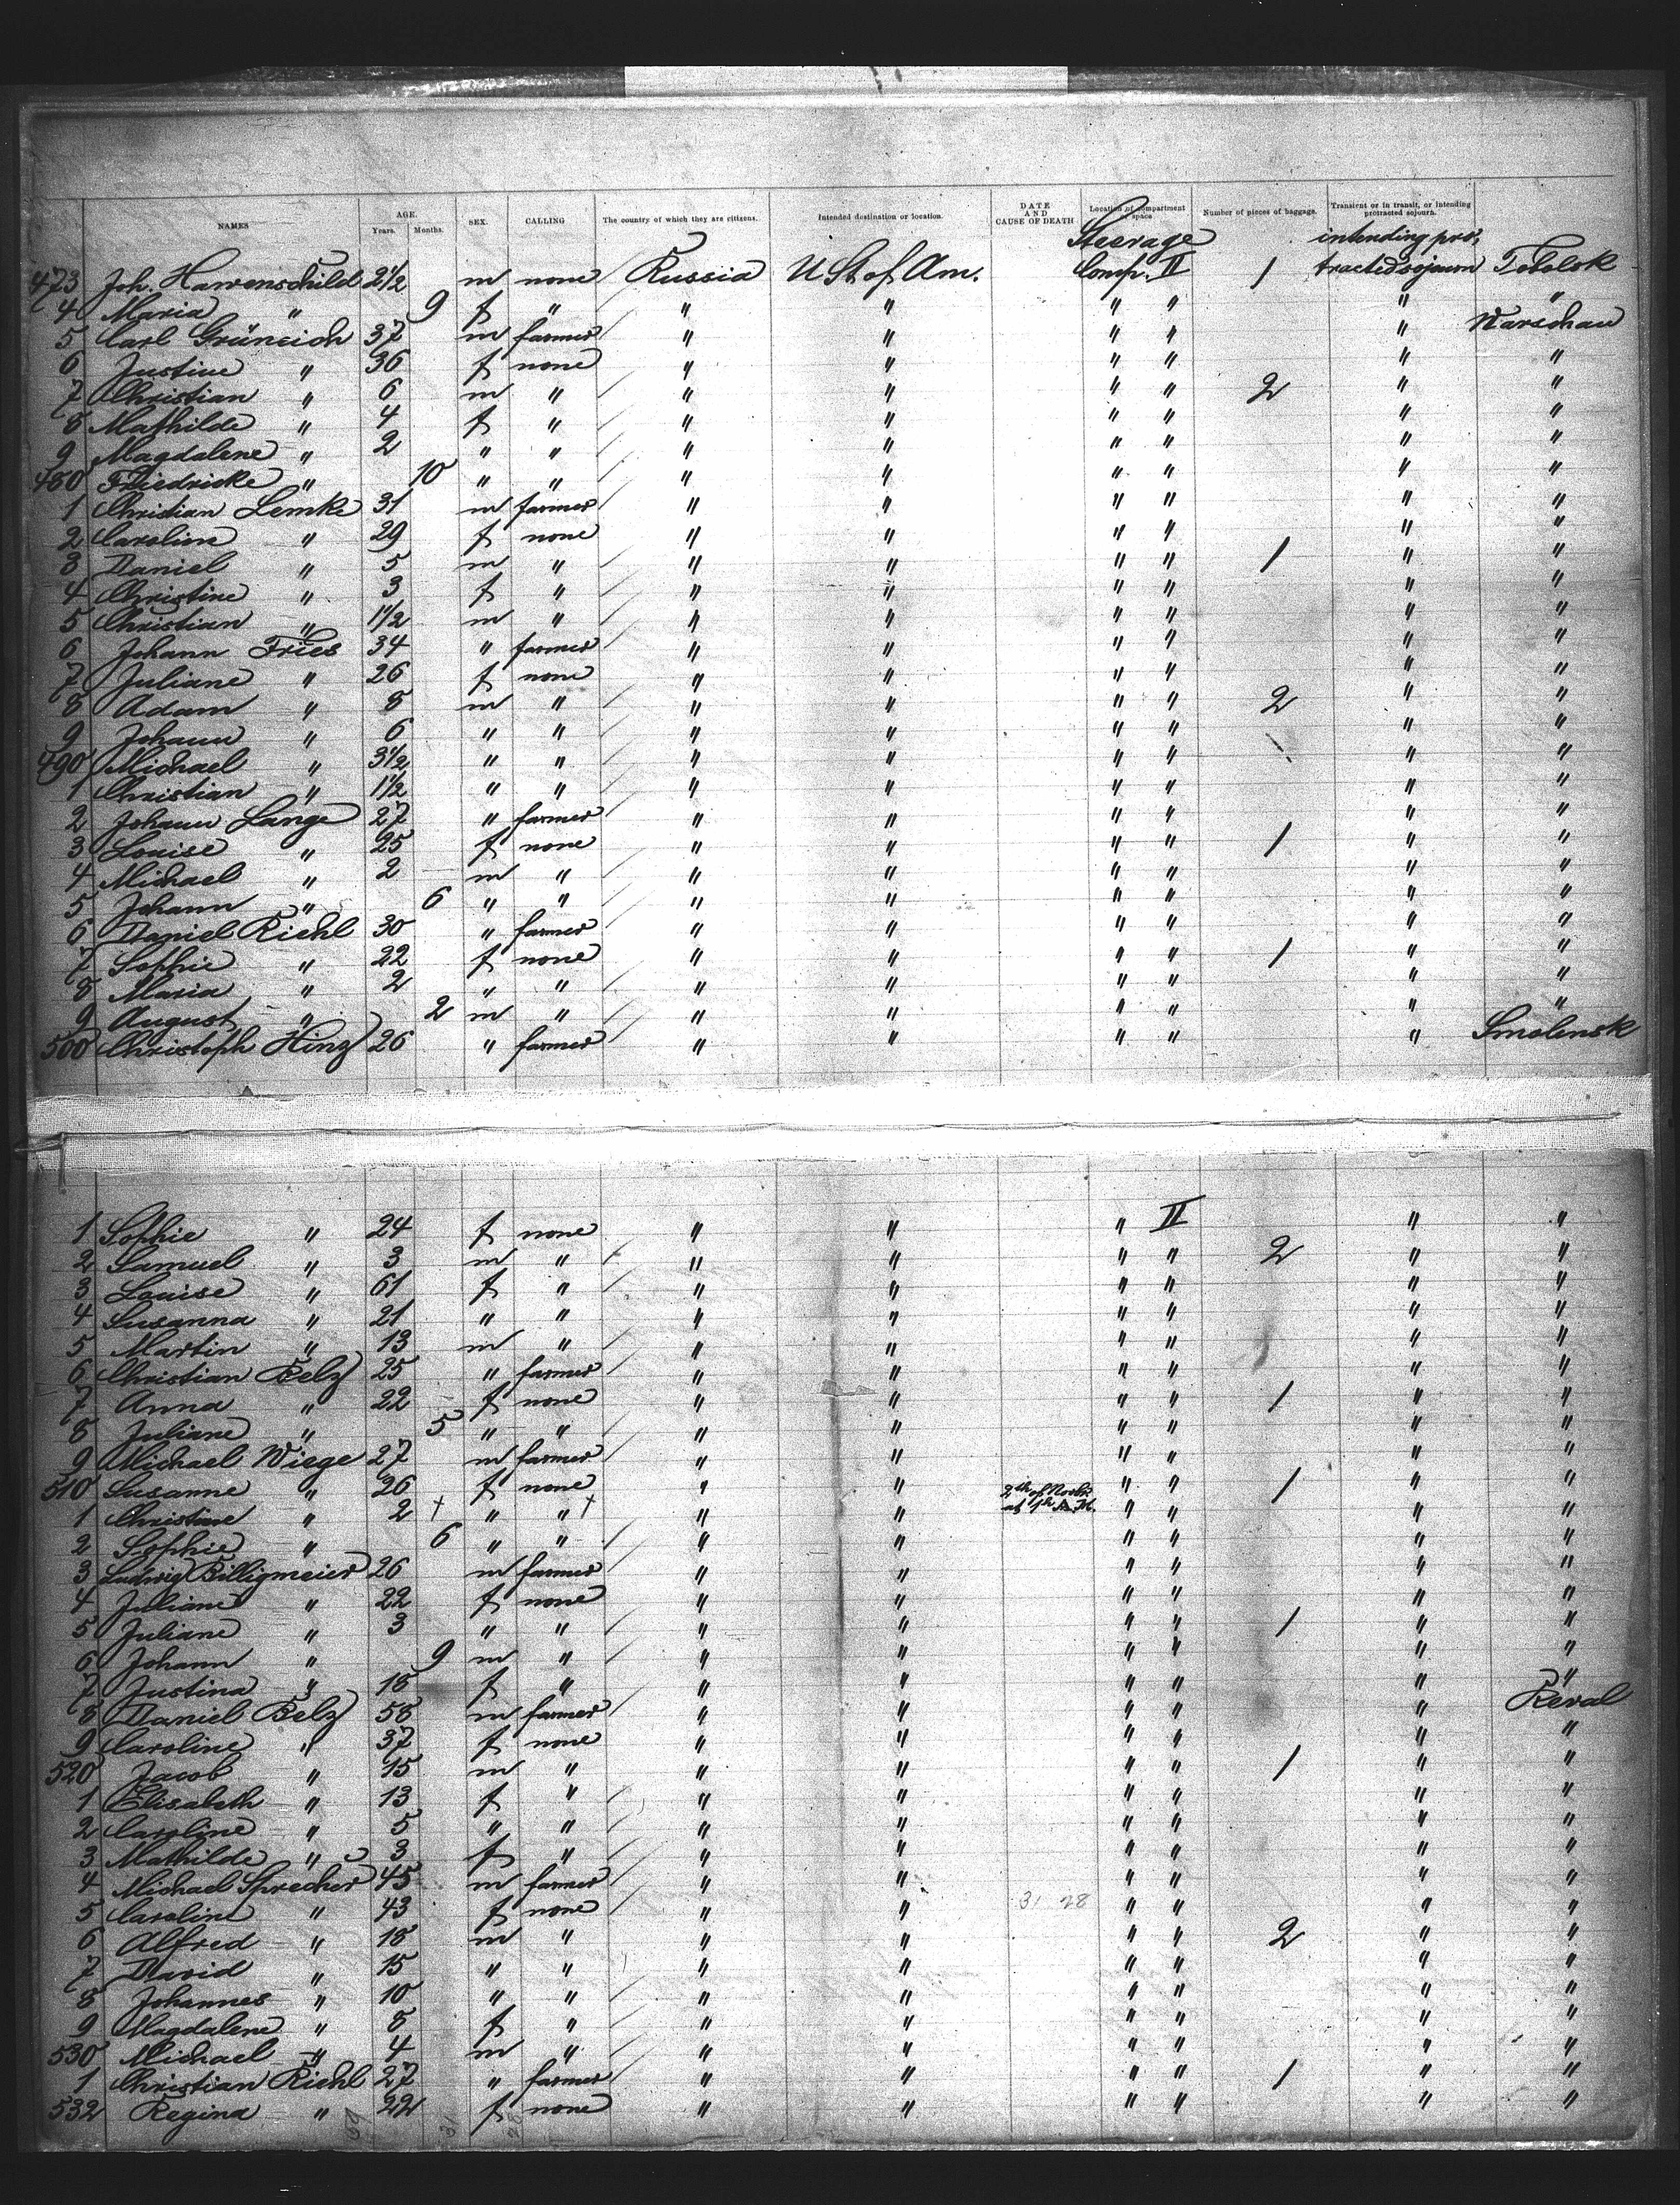 NAMES AGE. Years. Months. SEX. CALLING The country of which they are citizens. Intended destination or location. DATE AND CAUSE OF DEATH Location of compartment or space Number of pieces of baggage. Transient or in transit, or intending protracted sojourn.
Steerage intending pro,
473 Joh. Hawenschild 2 1/2 m none Russia U St of Am. Comp. II 1 tracted sojourn Tobolsk
4 Maria " 9 f " " " " " " "
5 Carl Grüneich 37 m farmer " " " " " Warschau
6 Justine " 36 f none " " " " " "
7 Christian " 6 m " " " " " 2 " "
8 Mathilde " 4 f " " " " " " "
9 Magdalene " 2 " " " " " " " "
480 Friedricke " 10 " " " " " " " "
1 Christian Lemke 31 m farmer " " " " " "
2 Caroline " 29 f none " " " " " "
3 Daniel " 5 m " " " " " 1 " "
4 Christine " 3 f " " " " " " "
5 Christian " 1 1/2 m " " " " " " "
6 Johann Fries 34 " farmer " " " " " "
7 Juliane " 26 f none " " " " " "
8 Adam " 8 m " " " " " 2 " "
9 Johann " 6 " " " " " " " "
490 Michael " 3 1/2 " " " " " " " "
1 Christian " 1 1/2 " " " " " " " "
2 Johann Lange 27 " farmer " " " " " "
3 Louise " 25 f none " " " " 1 " "
4 Michael " 2 m " " " " " " "
5 Johann " 6 " " " " " " " "
6 Daniel Riehl 30 " farmer " " " " " "
7 Sophie " 22 f none " " " " 1 " "
8 Maria " 2 " " " " " " " "
9 August " 2 m " " " " " " "
500 Christoph Hinz 26 " farmer " " " " " Smolensk
1 Sophie " 24 f none " " " II " "
2 Samuel " 3 m " " " " " 2 " "
3 Louise " 61 f " " " " " " "
4 Susanna " 21 " " " " " " " "
5 Martin " 13 m " " " " " " "
6 Christian Belz 25 " farmer " " " " " "
7 Anna " 22 f none " " " " 1 " "
8 Juliane " 5 " " " " " " " "
9 Michael Wiege 27 m farmer " " " " " "
510 Susanne " 26 f none " " 2th of Novbr " " 1 " "
1 Christine " 2 † " " † " " at 1h A.M. " " " "
2 Sophie " 6 " " " " " " " "
3 Ludwig Billigmeier 26 m farmer " " " " " "
4 Juliane " 22 f none " " " " " "
5 Juliane " 3 " " " " " " 1 " "
6 Johann " 9 m " " " " " " "
7 Justina " 18 f " " " " " " "
8 Daniel Belz 58 m farmer " " " " " Reval
9 Caroline " 37 f none " " " " " "
520 Jacob " 15 m " " " " " 1 " "
1 Elisabeth " 13 f " " " " " " "
2 Caroline " 5 " " " " " " " "
3 Mathilde " 3 f " " " " " " "
4 Michael Sprecher 45 m farmer " " " " " "
5 Caroline " 43 f none " " 31 28 " " " "
6 Alfred " 18 m " " " " " 2 " "
7 David " 15 " " " " " " " "
8 Johannes " 10 " " " " " " " "
9 Magdalene " 8 f " " " " " " "
530 Michael " 4 m " " " " " " "
1 Christian Riehl 27 " farmer " " " " 1 " "
532 Regina " 22 f none " " " " " "
59 31 28